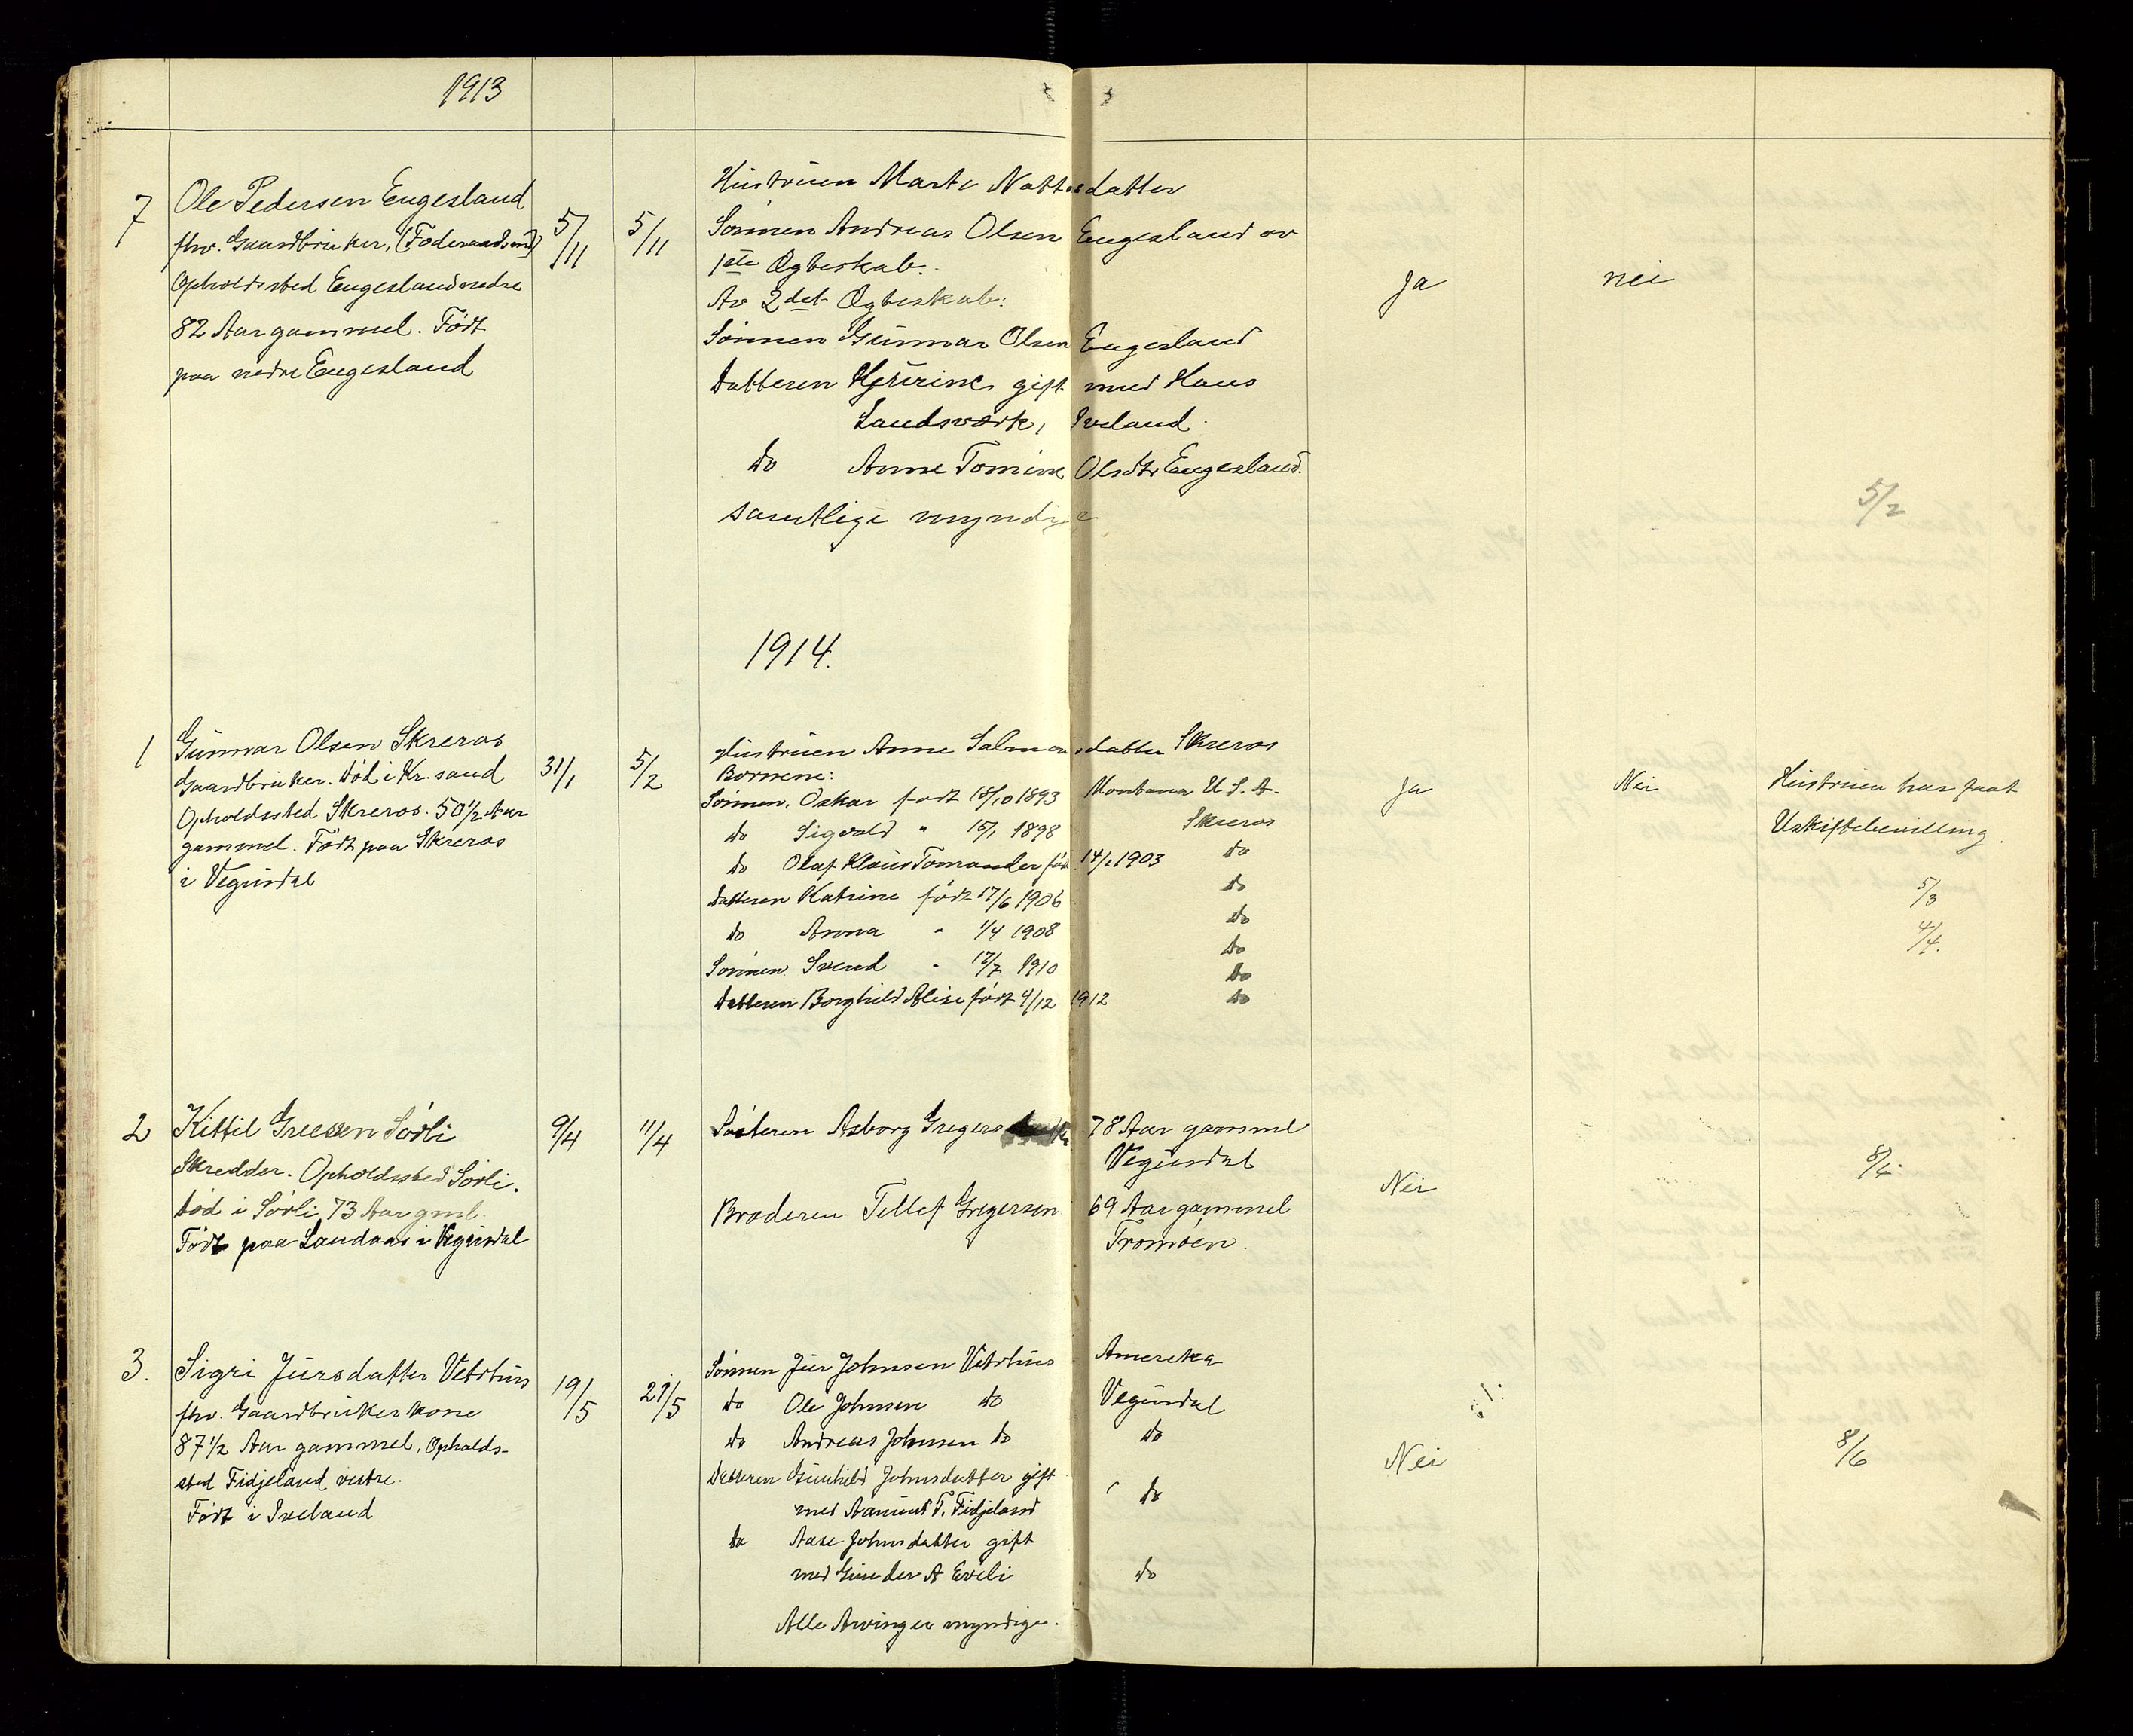 1913
7 Ole Pedersen Engesland
fhv. Gaardbruker, (Føderaadsmd)
Opholdssted Engesland nedre
82 Aar gammel. Født
paa nedre Engesland
5/11 5/11
Hustruen Marte Nottosdatter
Sønnen Andreas Olsen Engesland av
1ste Ægteskab.
Av 2det Ægteskab:
Sønnen Gunnar Olsen Engesland
Datteren gift med Hans
Landsværk, Iveland.
do Anne Tomine Olsdtr Engesland.
samtlige myndige
Ja nei
5/2
1914.
1 Gunnar Olsen Skreros
Gaardbruker. Død i Kr.sand
Opholdssted Skreros. 50 1/2 Aar
gammel. Født paa Skreros
i Vegusdal
31/1 5/2
Hustruen Anne Salmonsdatter Skreros
Børnene:
Sønnen, Oskar født 18/10 1893 Montana U.S.A.
do Sigvald " 15/1 1898 Skreros
do Olaf Klaus Tomander født 14/1 1903 do
Datteren Katrine født 17/6 1906 do
do Anna " 1/4 1908 do
Sønnen Svend " 17/7 1910 do
do
Datteren Borghild Alise født 4/12 1912 do
Ja Nei Hustruen har faat
Uskiftebevilling
5/3
4/4.
2 Kittil Greesen Sørli
Skrædder. Opholdssted Sørli.
død i Sørli, 73 Aar gml.
Født paa Landaas i Vegusdal
9/4 11/4
Søsteren Asborg Gregers 78 Aar gammel
Vegusdal
Broderen Tellef Gregersen 69 Aar gammel
Tromøen.
Nei
8/4.
3. Sigri Jursdatter Vetrhus
fhv. Gaardbrukerkone
87 1/2 Aar gammel, Opholds-
sted Fidjeland vestre.
Født i Iveland
19/5 27/5
Sønnen Jur Johnsen Vetrhus Amerika
do Ole Johnsen do Vegusdal
do Andreas Johnsen do do
Datteren Gunhild Johnsdatter gift
med Aanund T. Fidjeland do
do Aase Johnsdatter gift
med Gunder A Eveli do
Alle Arvinger myndige.
Nei
8/6